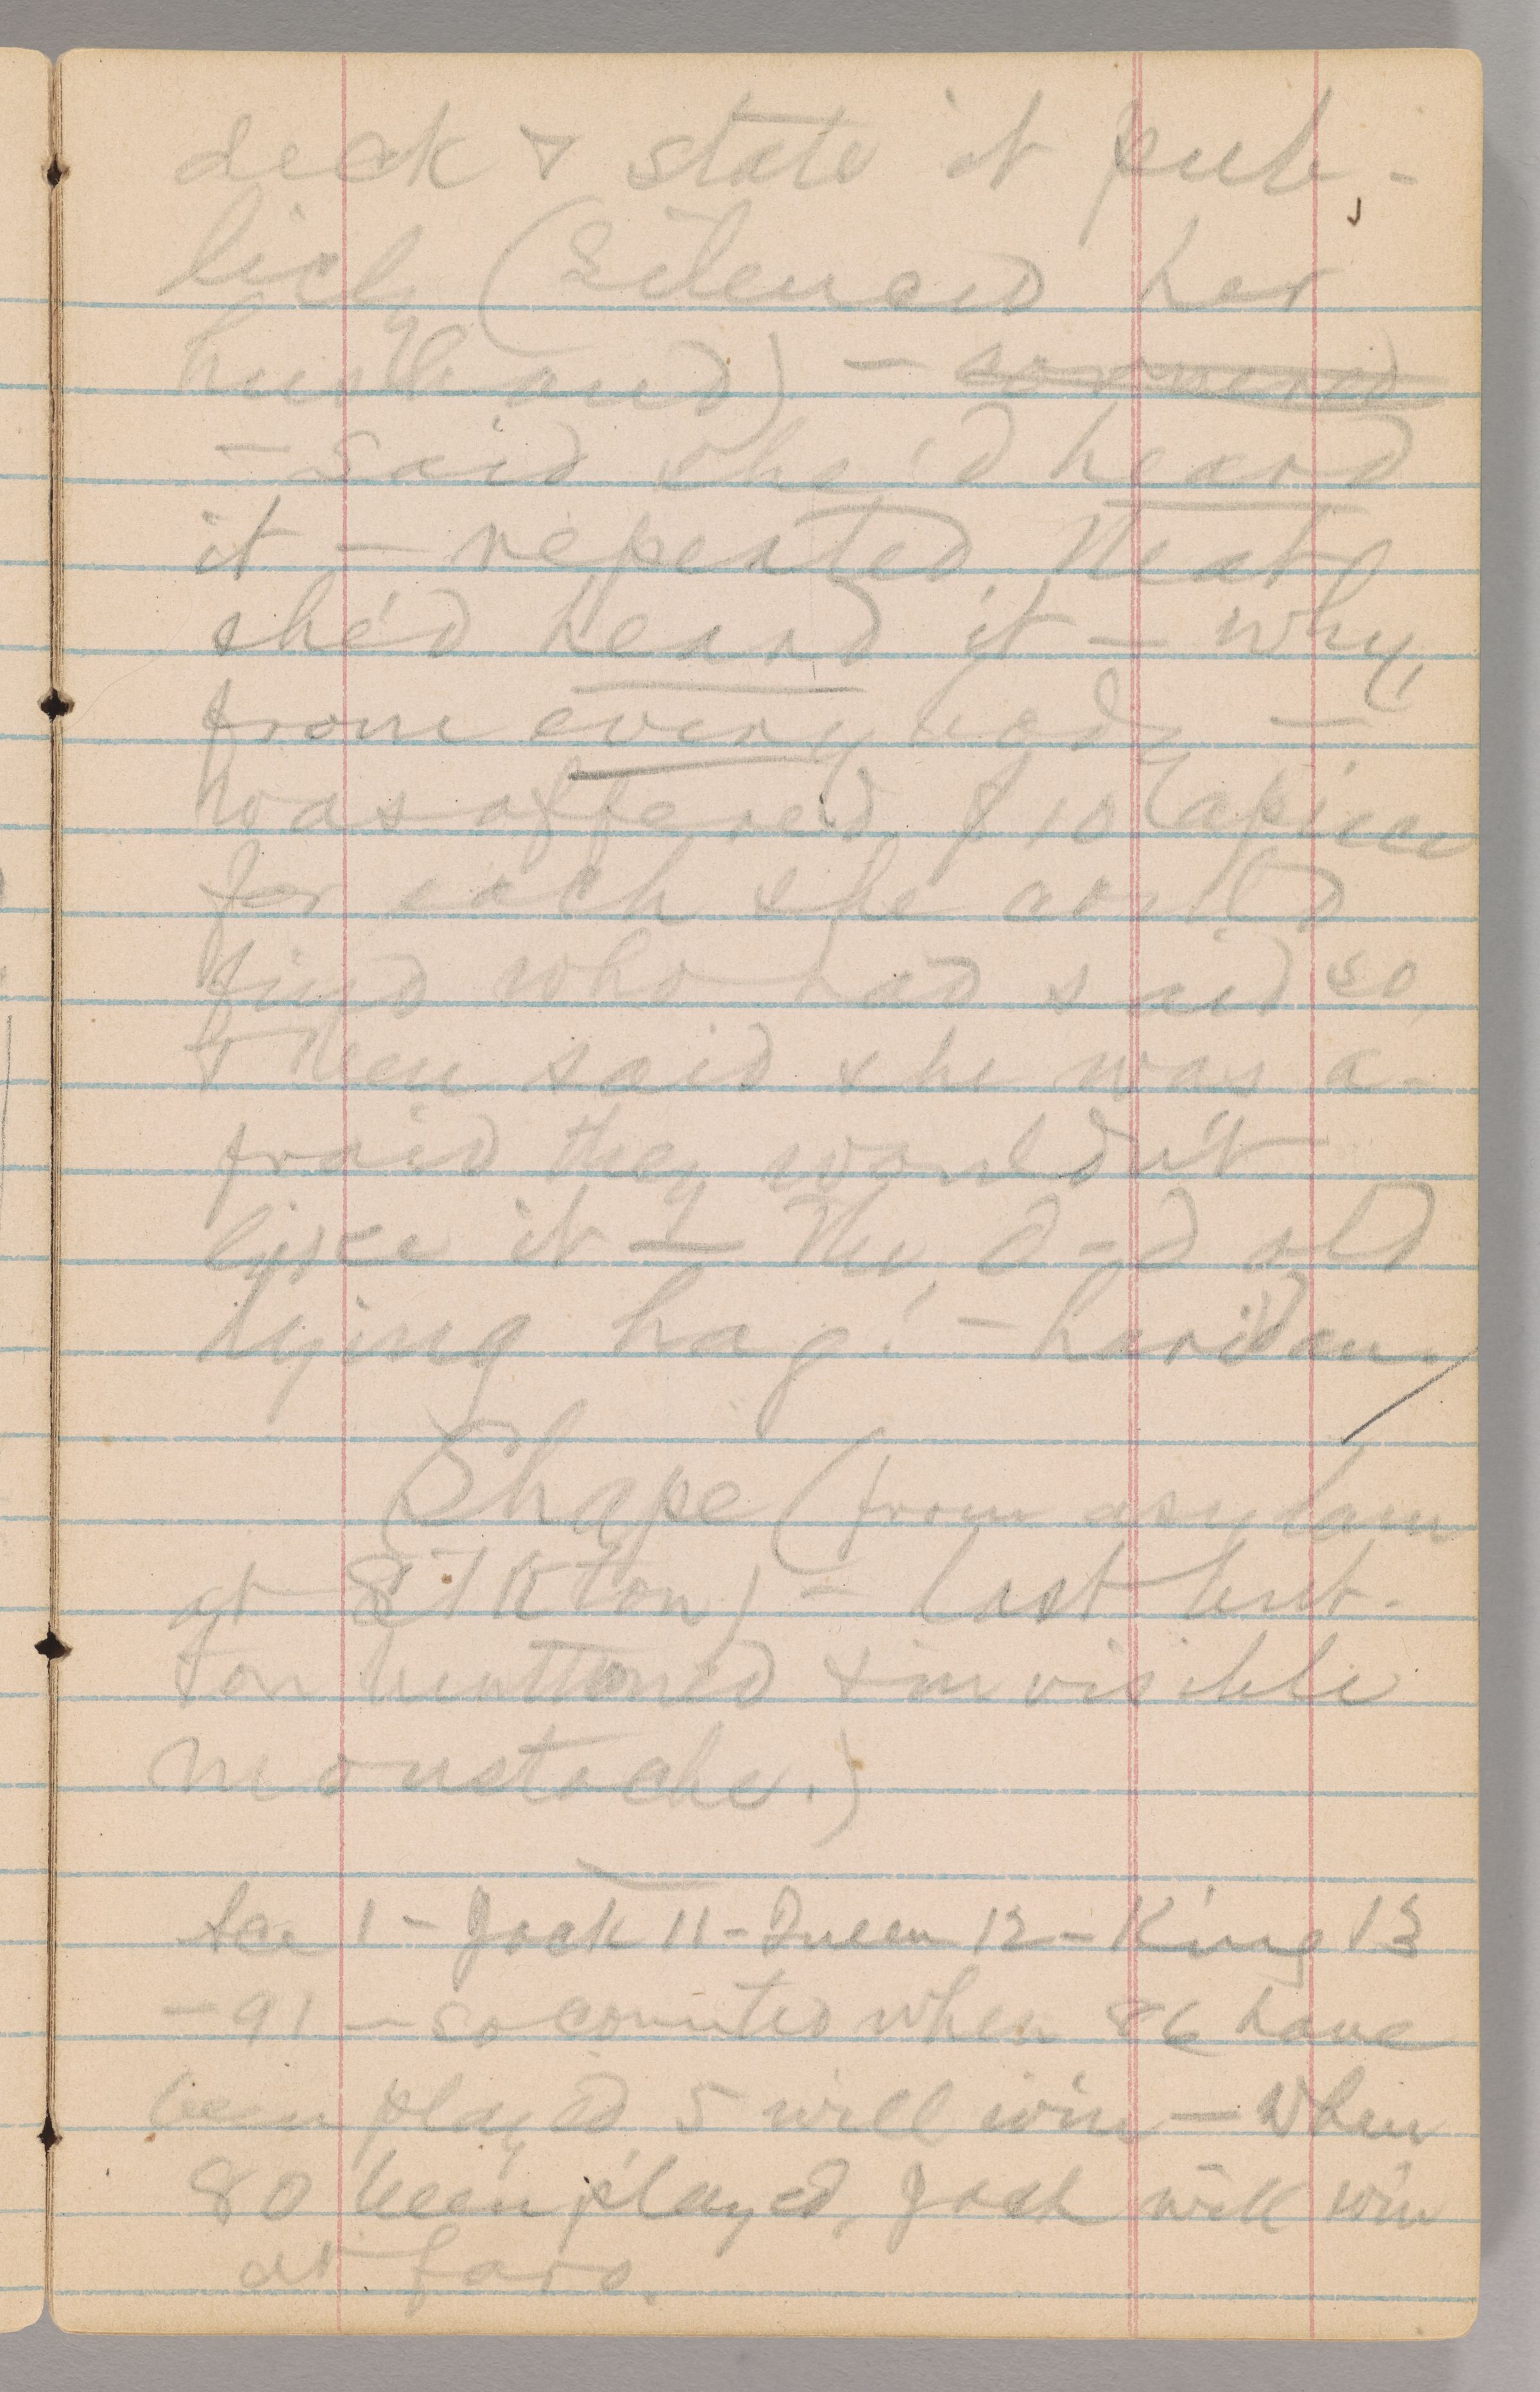 deck & state it pub-
licly (Silenced her
husband) — cornered
— Said she'd heard
it — repeated that
she'd heard it — why,
from everybody —
was offered $10 apiece
for each she could
find who had said so,
& then said she was a-
fraid they wouldn't
like it — The d—d old
lying hag! — haridan.
Shape (from asylum
at Elkton) — last but-
ton buttoned & invisible
moustache.)
Ace 1 — Jack 11 — Queen 12 — King 13
— 91 — so counted when 86 have
been played 5 will win — When
80 been played, Jack will win
at faro.